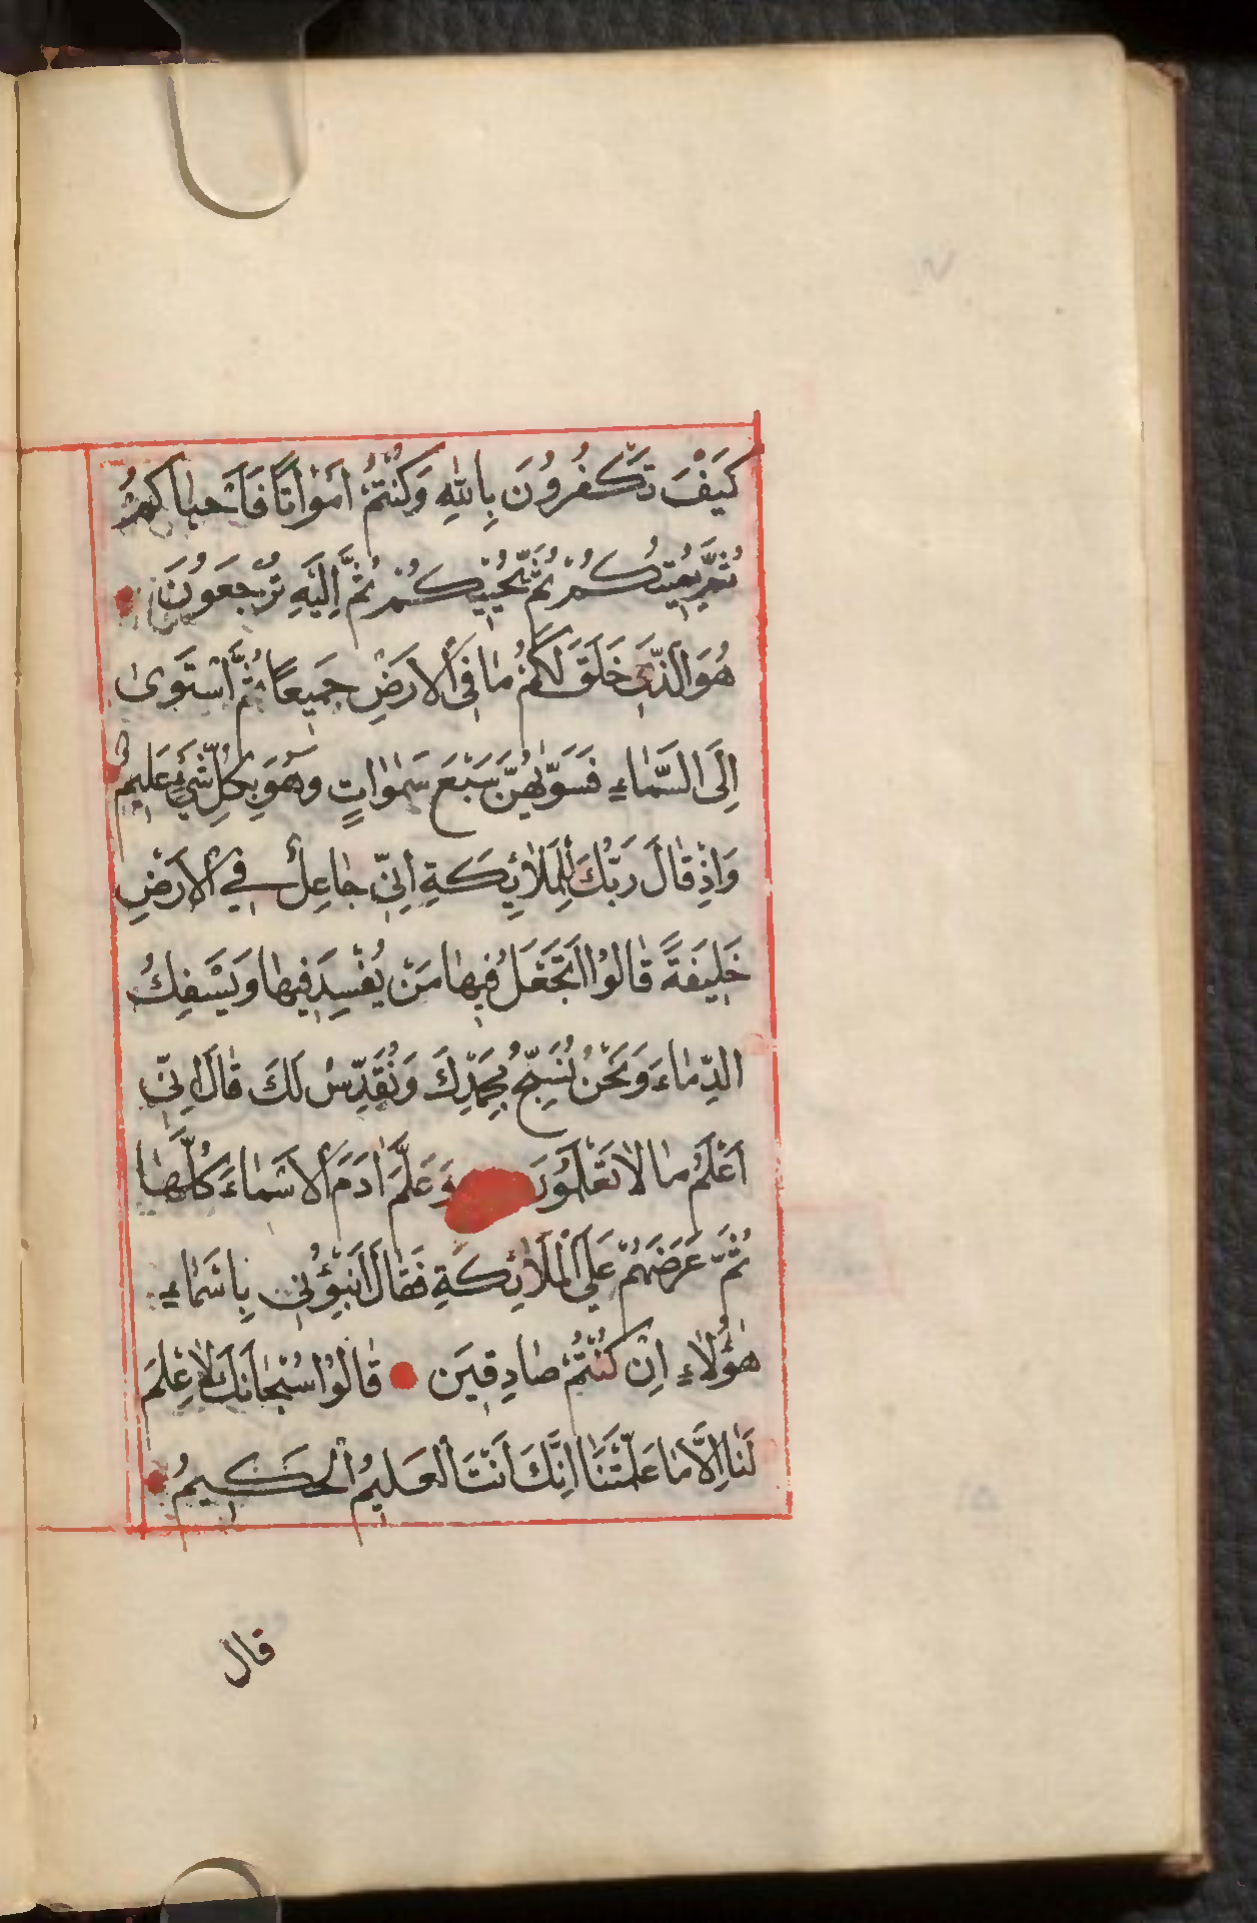 كَيْفَ تَكْفُرُونَ بِاللّٰهِ وَكُنْتُمْ اَمْوَاتًا فَاَحْيَاكُمْ
ثُمَّ يُمِيتُكُمْ ثُمَّ يُحْيِيكُمْ ثُمَّ اِلَيْهِ تُرْجَعُونَ
هُوَ الَّذِي خَلَقَ لَكُمْ مَا فِي الْاَرْضِ جَمِيعًا ثُمَّ اسْتَوٰى
اِلَى السَّمَاءِ فَسَوّٰيهُنَّ سَبْعَ سَمٰوَاتٍ وَهُوَ بِكُلِّ شَيْءٍ عَلِيمٌ
وَاِذْ قَالَ رَبُّكَ لِلْمَلَائِكَةِ اِنِّي جَاعِلٌ فِي الْاَرْضِ
خَلِيفَةً قَالُوا اَتَجْعَلُ فِيهَا مَنْ يُفْسِدُ فِيهَا وَيَسْفِكُ
الدِّمَاءَ وَنَحْنُ نُسَبِّحُ بِحَمْدِكَ وَنُقَدِّسُ لَكَ قَالَ اِنِّي
اَعْلَمُ مَا لَا تَعْلَمُونَ وَعَلَّمَ اٰدَمَ الْاَسْمَاءَ كُلَّهَا
ثُمَّ عَرَضَهُمْ عَلَى الْمَلَائِكَةِ فَقَالَ اَنْبِؤُنِي بِاَسْمَاءِ
هٰؤُلَاءِ اِنْ كُنْتُمْ صَادِقِينَ قَالُوا سُبْحَانَكَ لَا عِلْمَ
لَنَا اِلَّا مَا عَلَّمْتَنَا اِنَّكَ اَنْتَ الْعَلِيمُ الْحَكِيمُ
قال